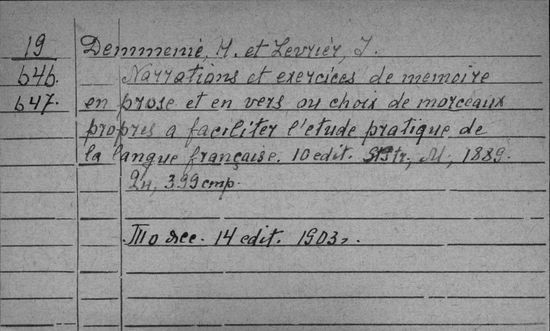 19 Demmenie, H. et Levrier, J.
646. Narrations et exercices de memoire
647. en prose et en vers ou choix de morceaux
propres a faciliter l'etude pratique de
la langue française. 10 edit. M., 1889.
2н, 399 стр.
То же. 14 edit. 1903г.